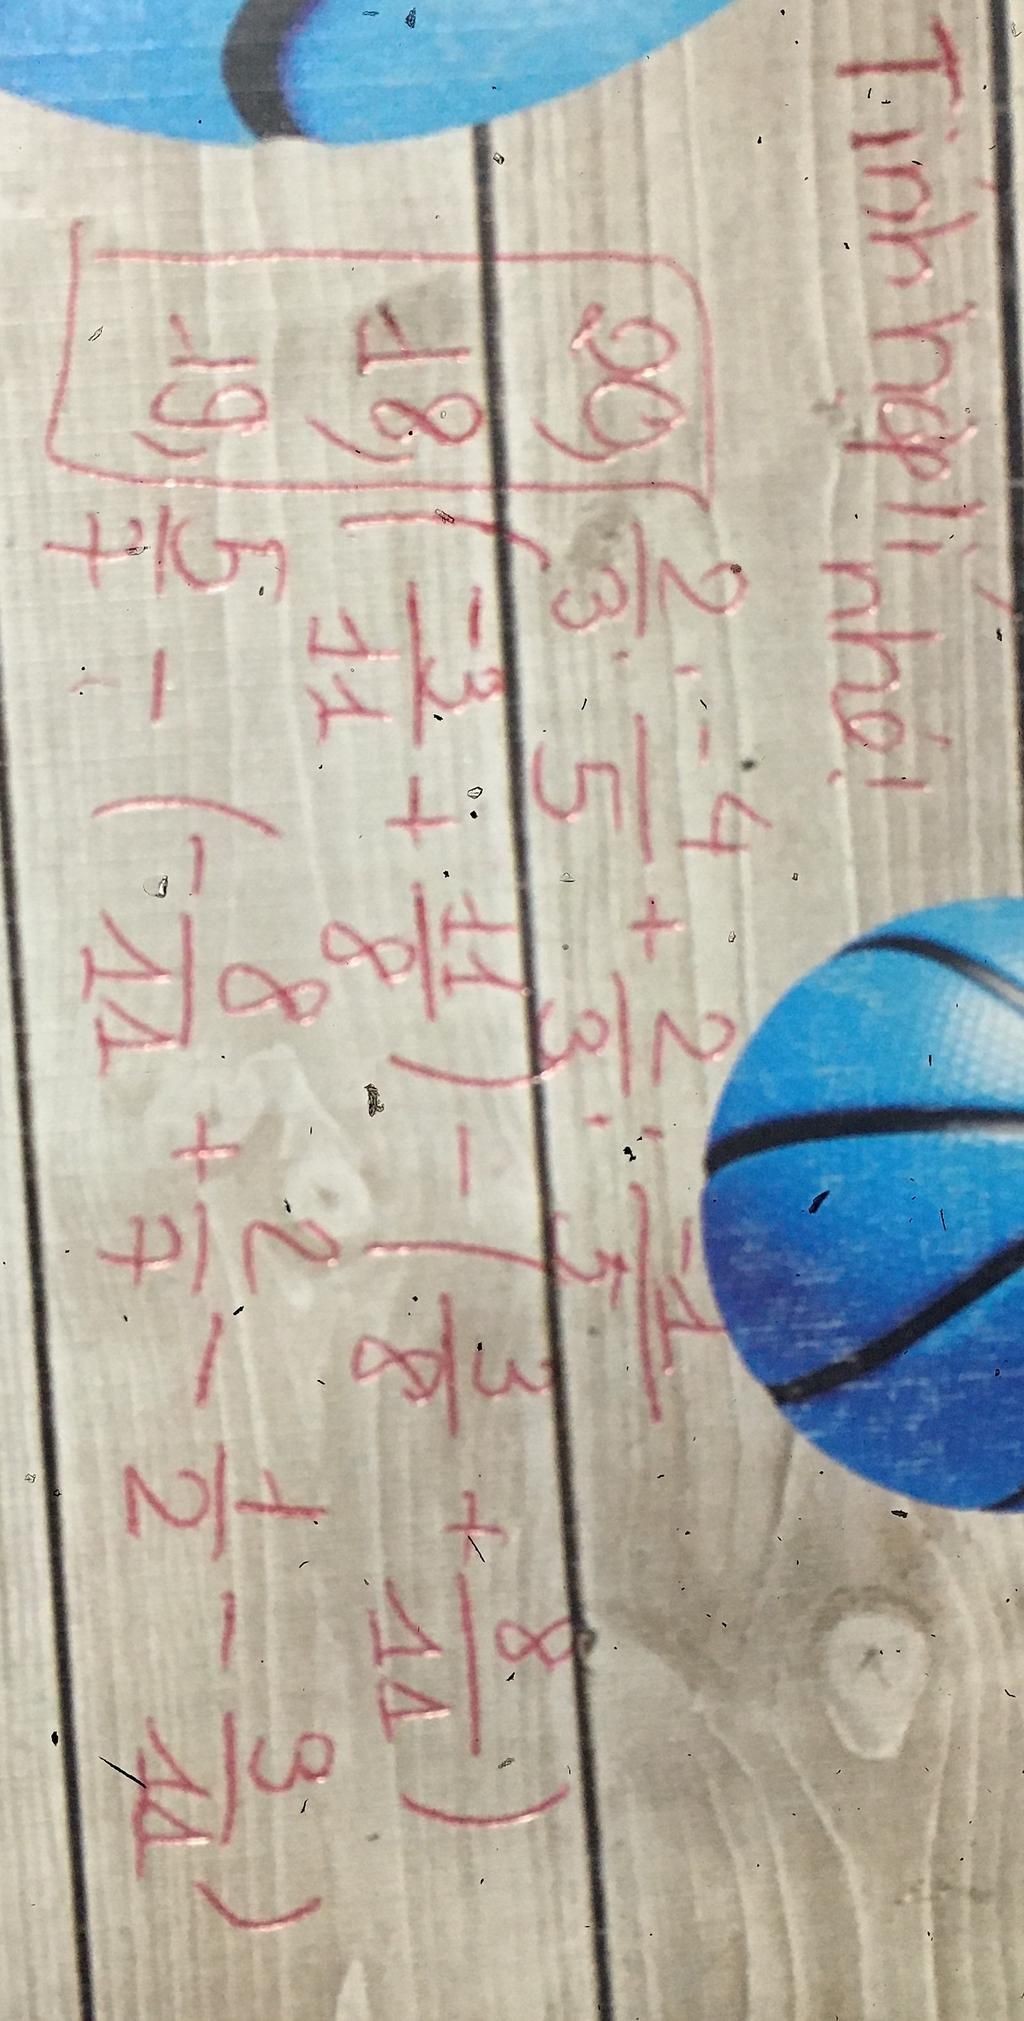 Tính hợp lí nhé!
20) 2/3 . -4/5 + 2/3 . -1/5
18) (-3/11 + 11/8) - (3/8 + 8/11)
19) 5/7 - (-8/11 + 2/7 - 1/2 - 3/11)